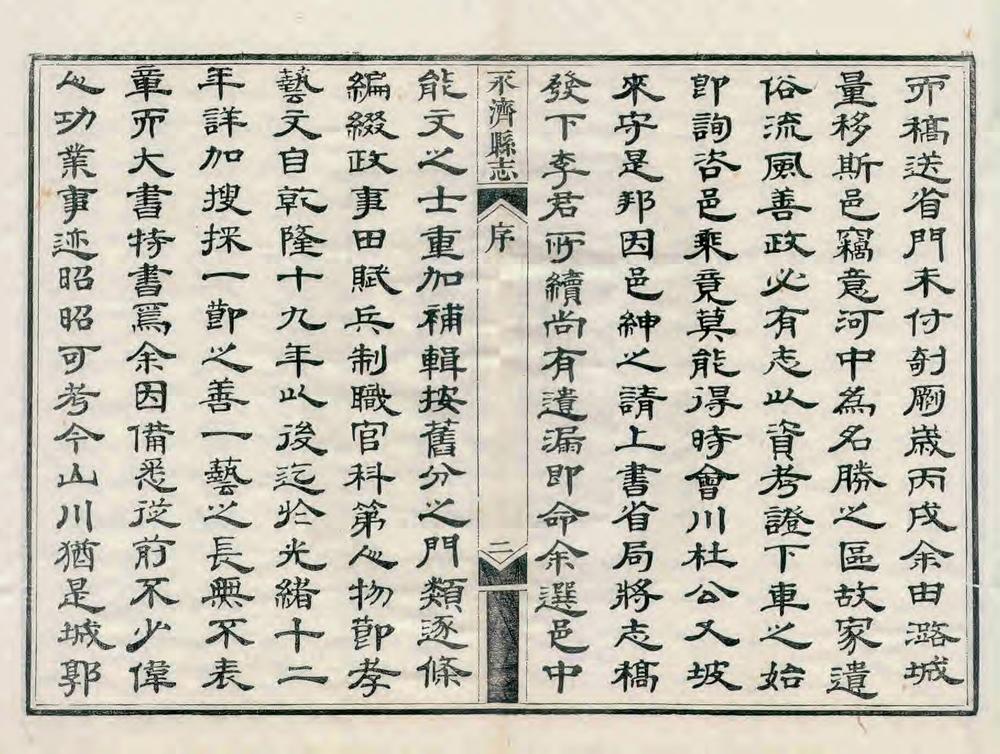 而稿送省門未付剞劂歲丙戌余由潞城
量移斯邑竊意河中為名勝之區故家遺
俗流風善政必有志以資考證下車之始
即詢咨邑乘竟莫能得時會川杜公又坡
來守是邦因邑紳之請上書省局將志稿
發下李君所續尚有遺漏即命余選邑中
永濟縣志
序
二
能文之士重加補輯按舊分之門類逐條
編綴政事田賦兵制職官科第人物節孝
藝文自乾隆十九年以後迄於光緒十二
年詳加搜採一節之善一藝之長無不表
章而大書特書焉余因備悉從前不少偉
人功業事迹昭昭可考今山川猶是城郭